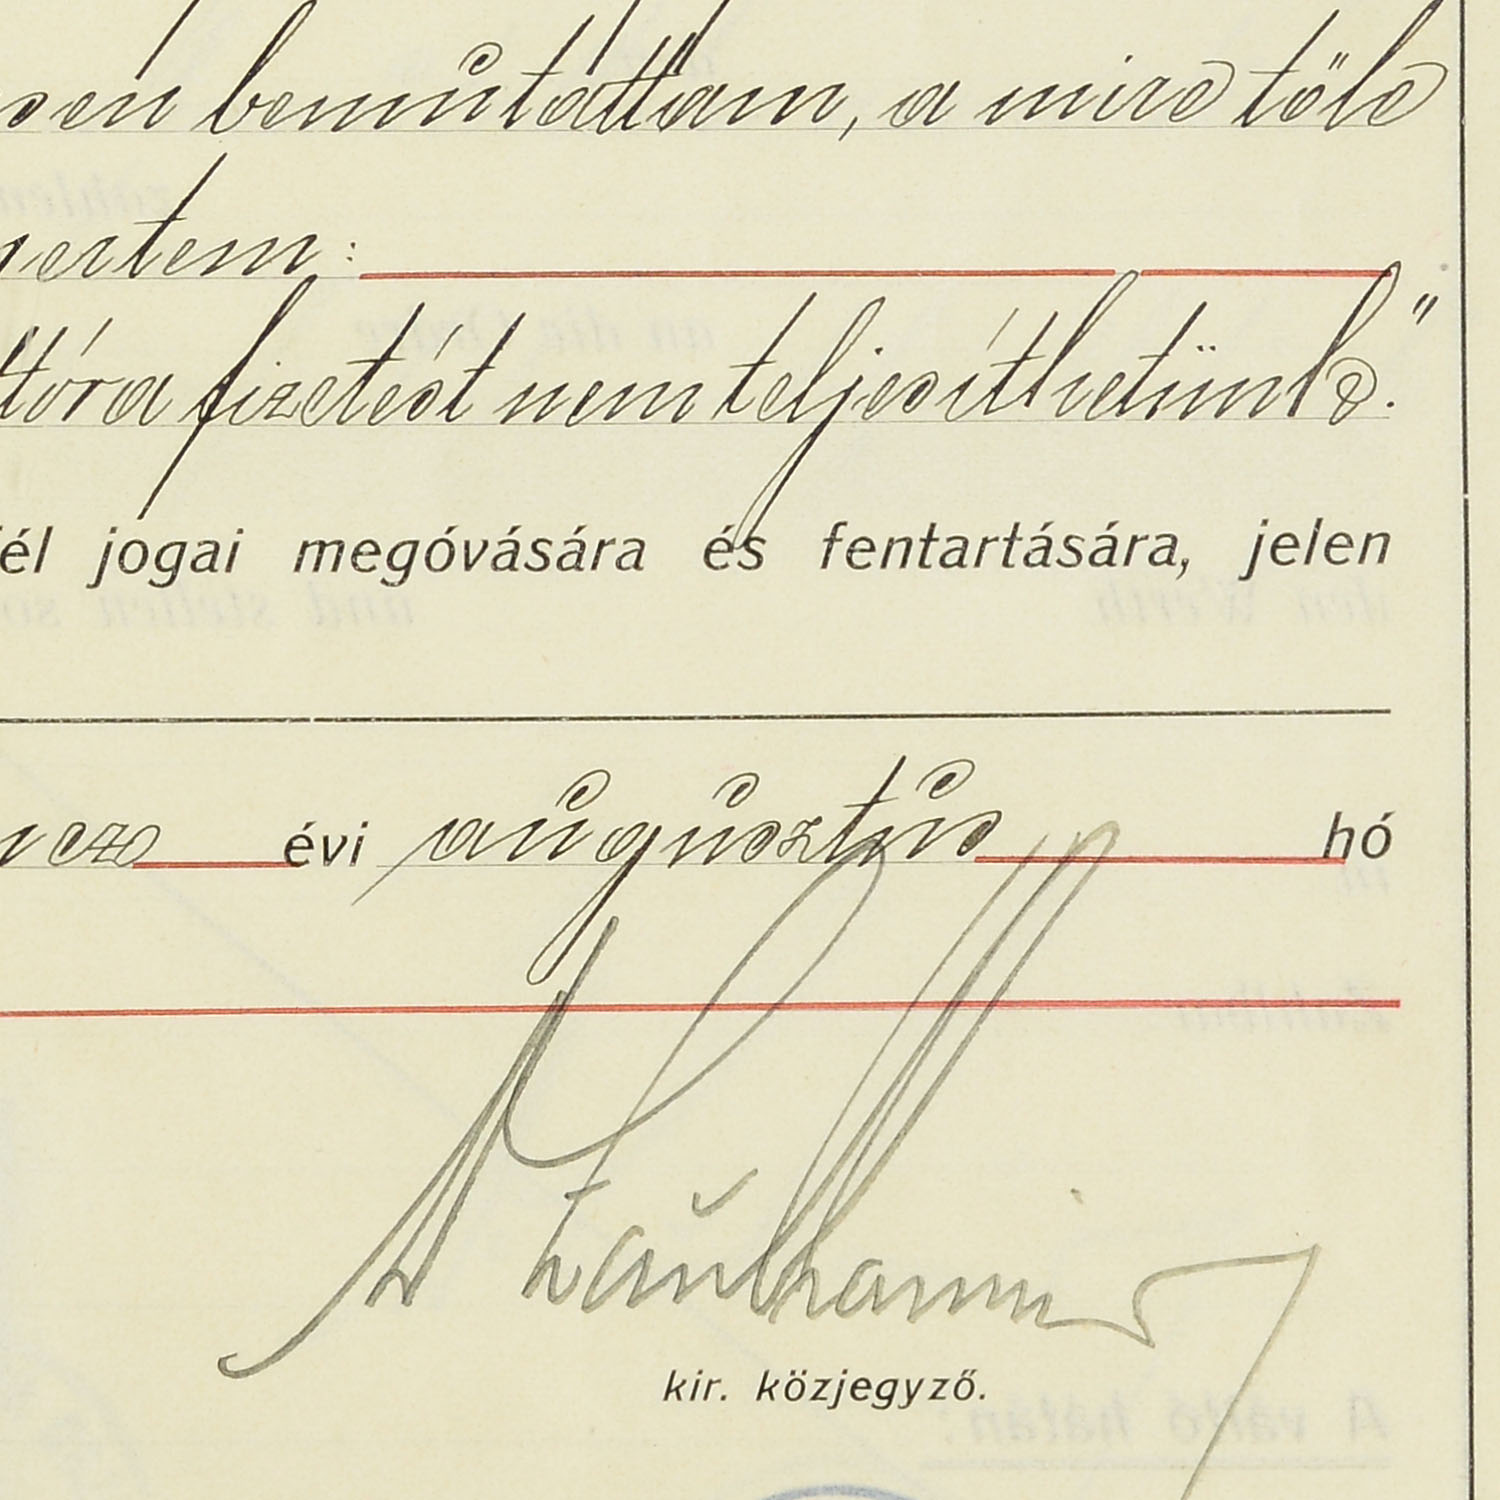 sen bemutattam, a mire tőle
nertem:
ttóra fizetést nem teljesíthetünk."
fél jogai megóvására és fentartására, jelen
évi augusztus hó
kir. közjegyző.